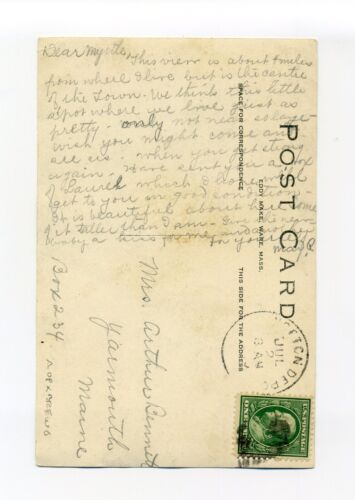 Dear Myrtle, This view is about 4 miles
from where I live but is the centre
of the Town. We think this little
spot where we live just as
pretty - only not near so large.
wish you might come and
see us - when you get strong
again. Have sent you a box
of Laurel which I hope will
get to you in good condition -
It is beautiful about here, some
of it taller than I am. Give the new
baby a kiss for me and another
for you.
Box 234
POST CARD
SPACE FOR CORRESPONDENCE
EDDY MAKE, WARE, MASS.
THIS SIDE FOR THE ADDRESS
Mrs. Arthur Bennett
Yarmouth
Maine
JUL
2
8 AM
U.S. POSTAGE